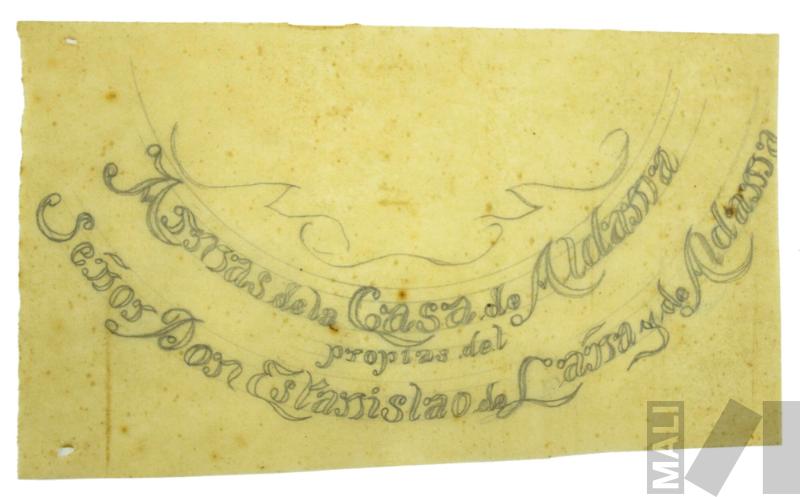 Armas de la Casa de Aldama
propias del
Señor Don Estanislao de Laña y de Aldama
MALI